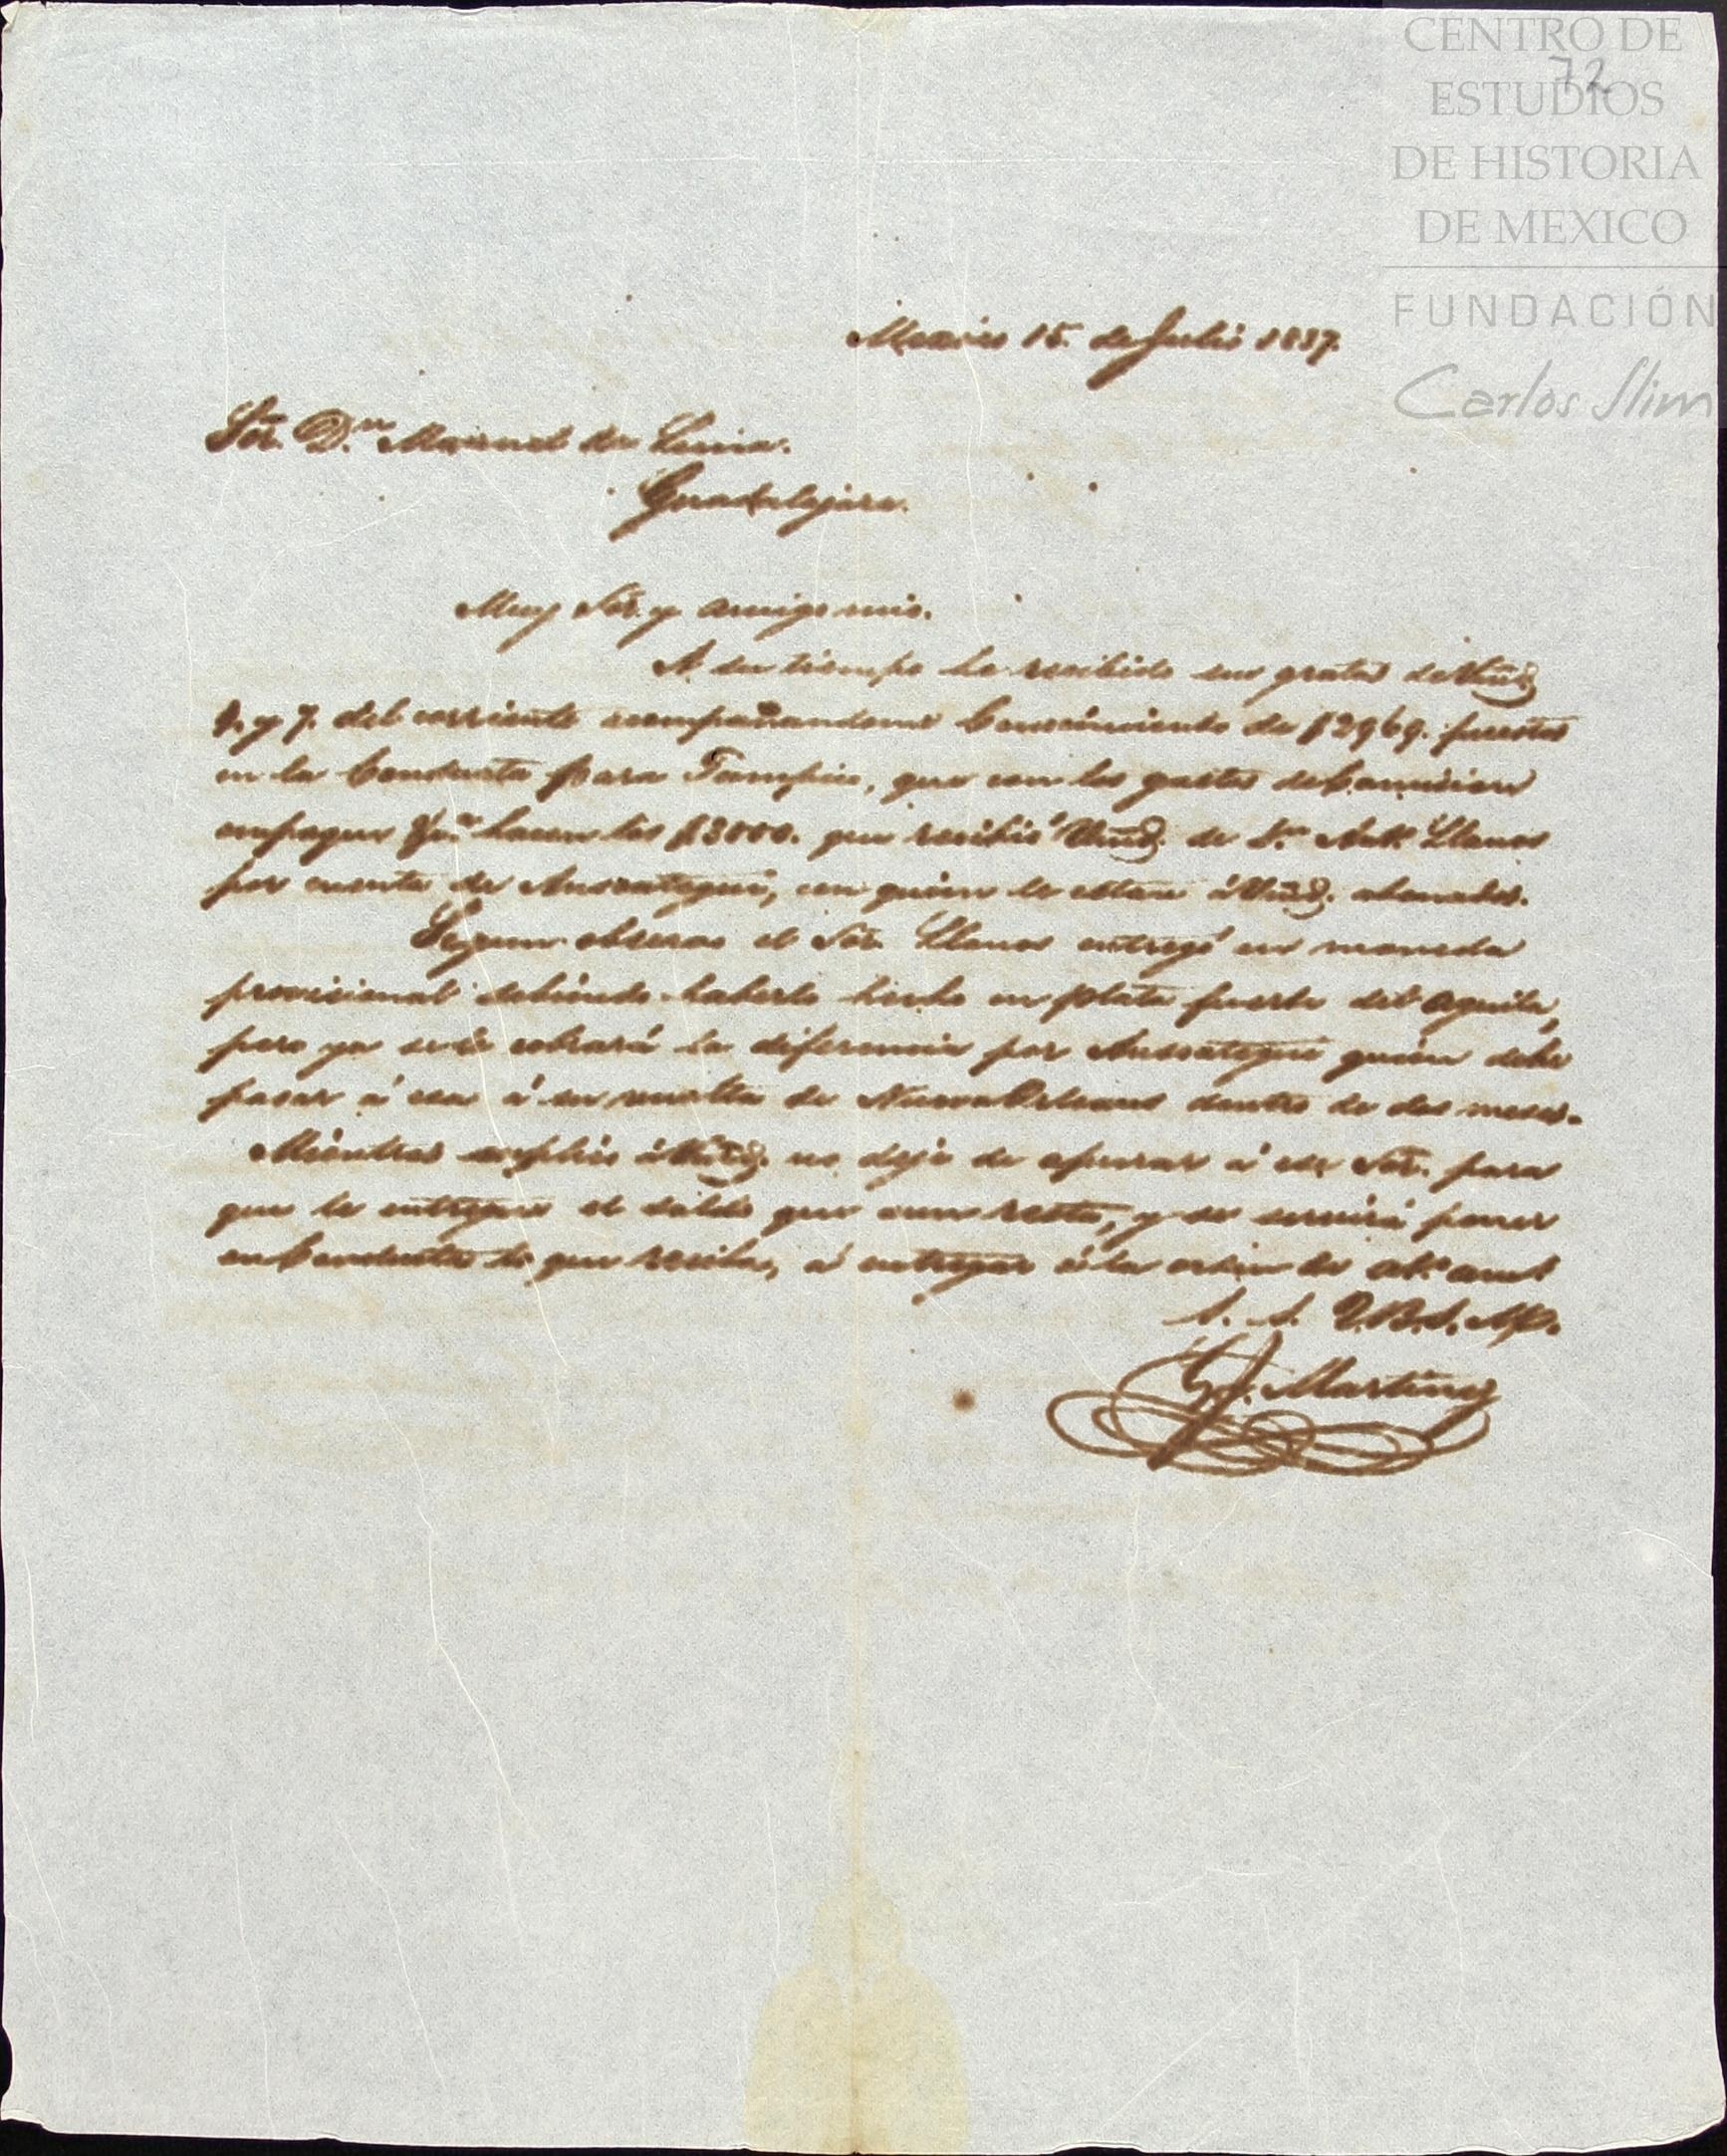 CENTRO DE
72
ESTUDIOS
DE HISTORIA
DE MEXICO
FUNDACIÓN
Carlos Slim
Mexico 15. de Julio 1837.
Sor. Dn. Manuel de Luna.
Guadalajara.
Muy Sor. y amigo mio.
A su tiempo he recibido sus gratas de Vmd
y 7. del corriente acompañandome Conocimiento de $2969. puestos
en la Conducta para Tampico, que con los gastos de Comision
empaque &a. hacen los $3000. que recibió Vmd. de Dn. Anto. Llanos
por cuenta de con quien le estan á Vmd. abonados.
Segun observo el Sor. Llanos entregó en moneda
provisional debiendo haberlo hecho en plata fuerte del aguila,
pero ya se le cobrará la diferencia por quien debe
pasar á esa á su vuelta de Nueva Orleans dentro de dos meses.
Miéntras suplico á Vmd. no deje de apurar á ese Sor. para
que le entregue el saldo que aun resta, y se servirá poner
en Conducta lo que reciba, á entregar á la orden de
S. S. Q.B.S.M.
G. J. Martinez